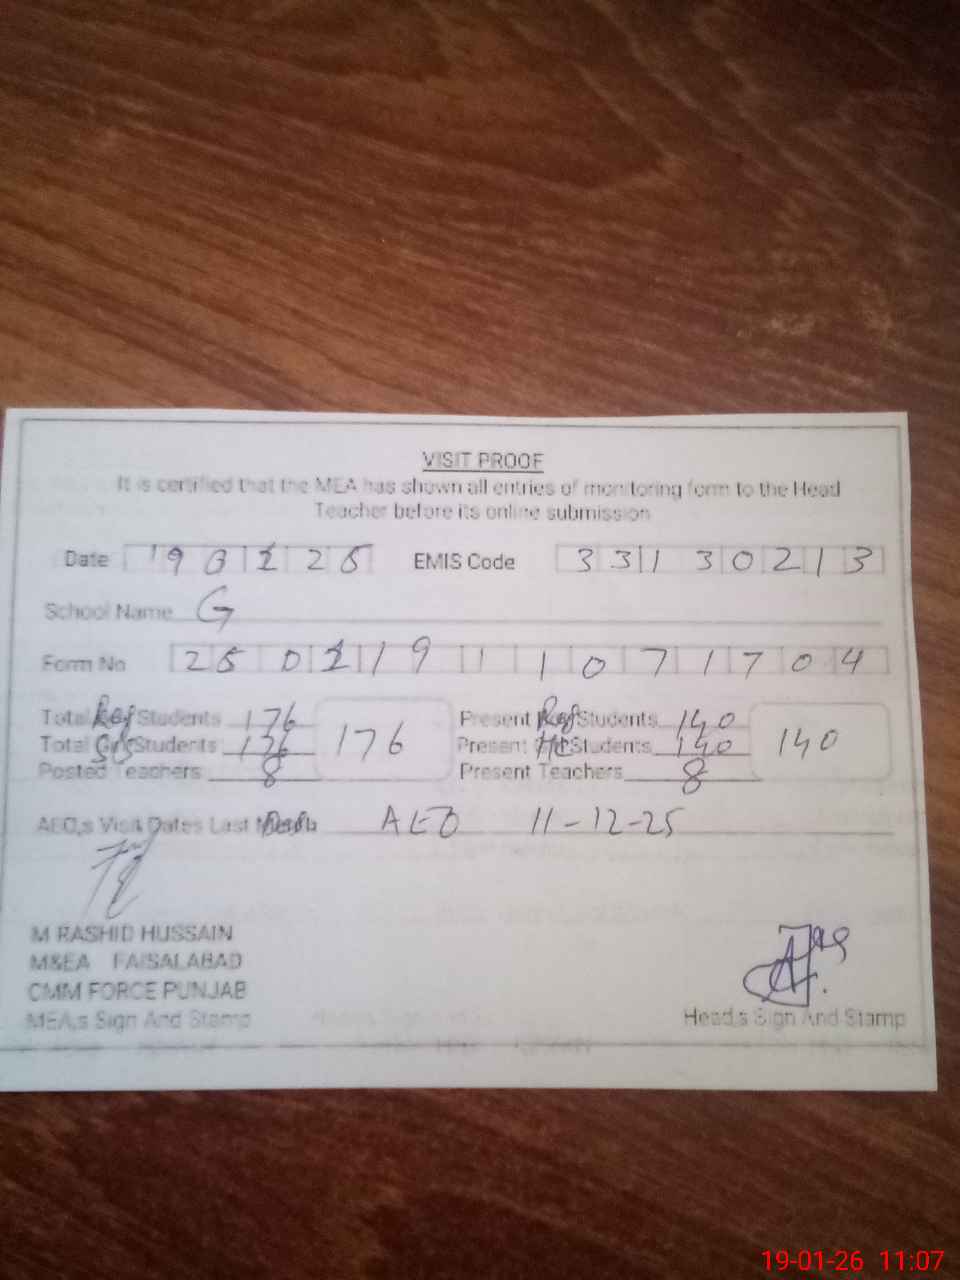 VISIT PROOF
It is certified that the MEA has shown all entries of monitoring form to the Head
Teacher before its online submission
Date 19 0 1 2 6 EMIS Code 3 3 1 3 0 2 1 3
School Name G
Form No 2 6 0 1 1 9 1 1 0 7 1 7 0 4
Total Reg Students 176 176 Present Reg Students 140 140
Total Students 176 Present Students 140
Posted Teachers 8 Present Teachers 8
AEO,s Visit Dates Last Month AEO 11-12-25
M RASHID HUSSAIN
M&EA FAISALABAD
CMM FORCE PUNJAB
MEA,s Sign And Stamp Head,s Sign And Stamp
19-01-26 11:07